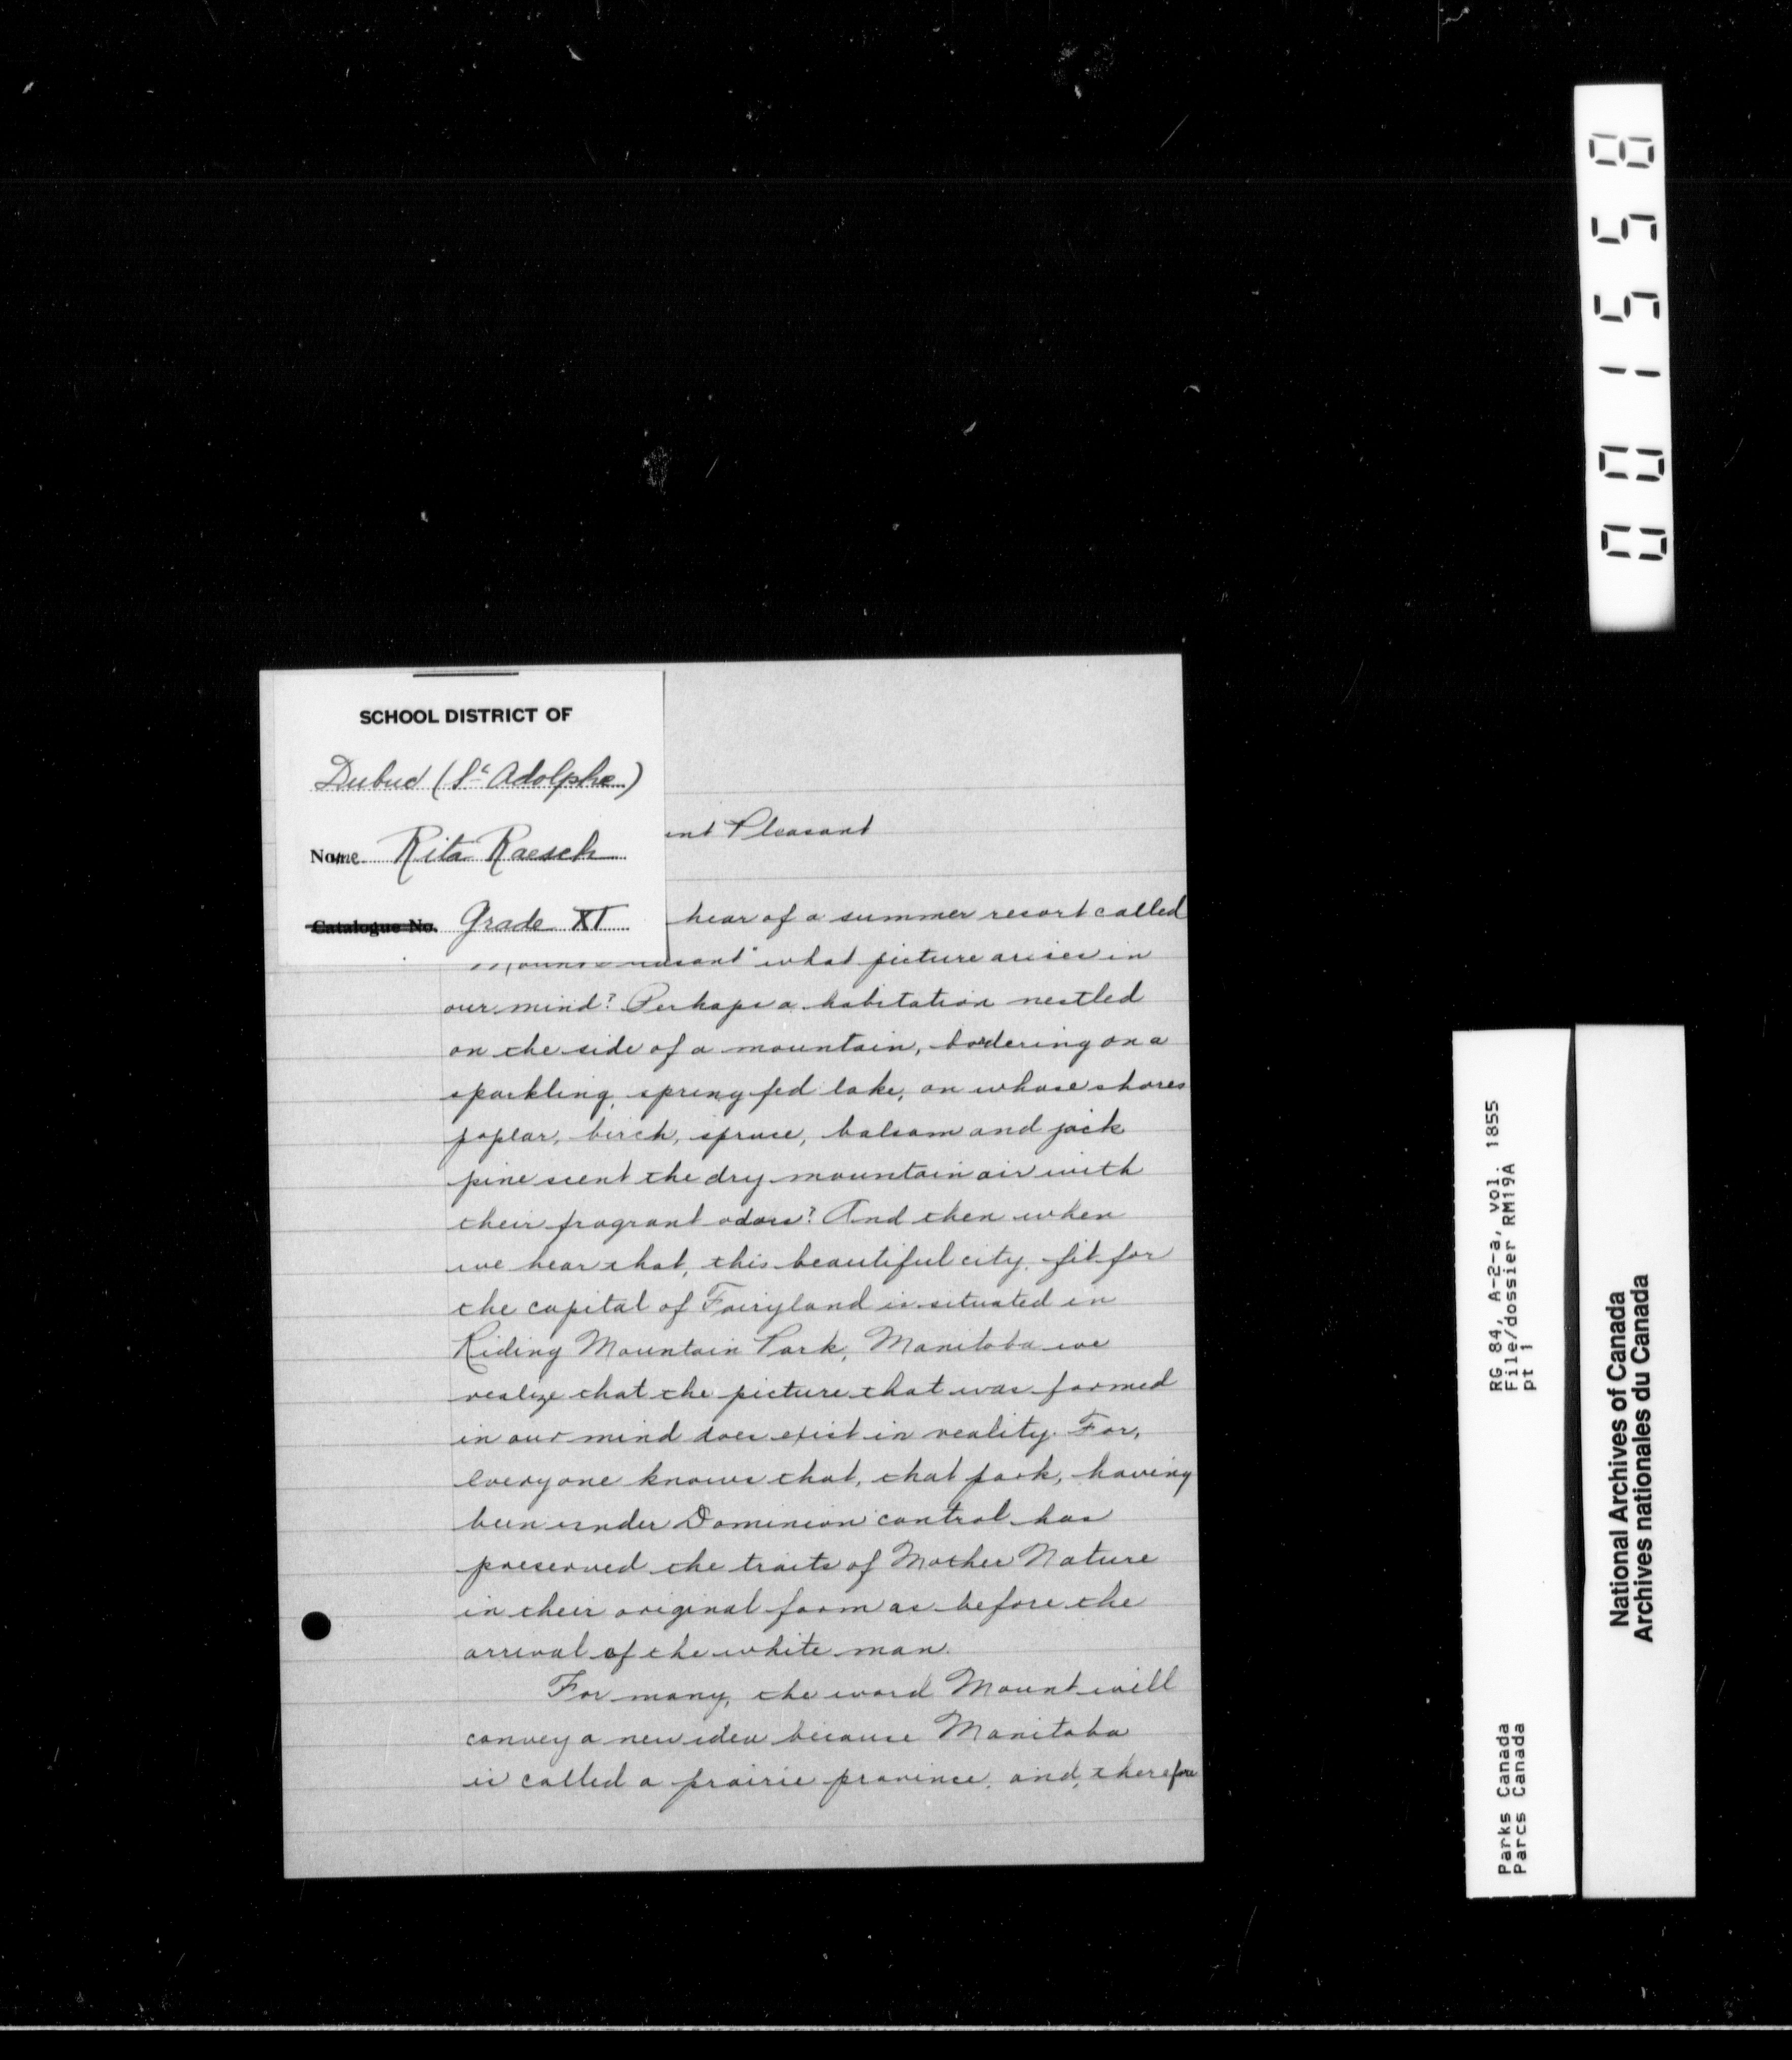 SCHOOL DISTRICT OF
Dubuc (St Adolphe)
Name Rita Raesch
Catalogue No. Grade XI
ent Pleasant
hear of a summer resort called
what picture arises in
our mind? Perhaps a habitation nestled
on the side of a mountain, bordering on a
sparkling, spring fed lake, on whose shores
poplar, birch, spruce, balsam and jack
pine scent the dry mountain air with
their fragrant odors? And then when
we hear that, this beautiful city, fit for
the capital of Fairyland is situated in
Riding Mountain Park, Manitoba we
realize that the picture that was formed
in our mind does exist in reality. For,
everyone knows that, that park, having
been under Dominion control has
preserved the traits of Mother Nature
in their original form as before the
arrival of the white man.
For many, the word Mount will
convey a new idea because Manitoba
is called a prairie province, and, therefore
001558
RG 84, A-2-a, vol. 1855
File/dossier RM19A
pt 1
Parks Canada
Parcs Canada
National Archives of Canada
Archives nationales du Canada